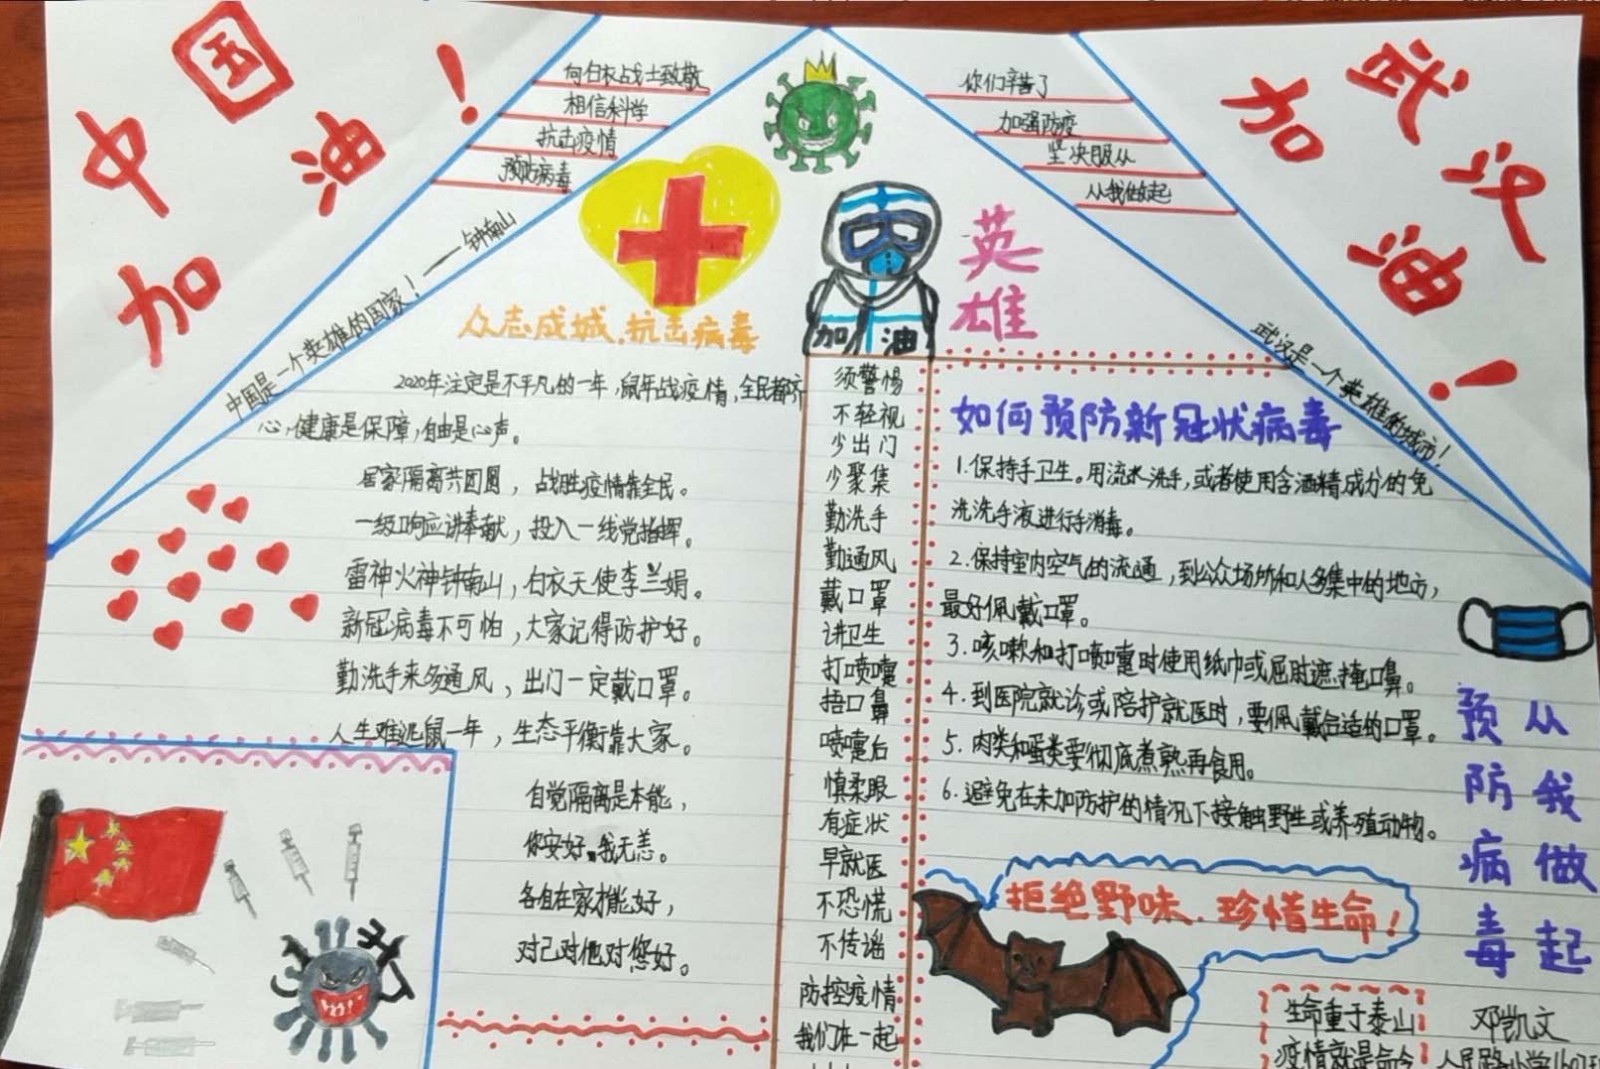 中国加油！
向白衣战士致敬
相信科学
抗击疫情
预防病毒
中国是一个英雄的国家！——钟南山
你们辛苦了
加强防疫
坚决服从
从我做起
武汉加油！
武汉是一个英雄的城市！
英雄
加油
众志成城.抗击病毒
2020年注定是不平凡的一年,鼠年战疫情,全民都齐
心,健康是保障,自由是心声。
居家隔离共团圆，战胜疫情靠全民。
一级响应讲奉献，投入一线党指挥。
雷神火神钟南山，白衣天使李兰娟。
新冠病毒不可怕，大家记得防护好。
勤洗手来多通风，出门一定戴口罩。
人生难迟鼠一年，生态平衡靠大家。
自觉隔离是本能，
你安好,我无恙。
各自在家才能好，
对己对他对您好。
须警惕
不轻视
少出门
少聚集
勤洗手
勤通风
戴口罩
讲卫生
打喷嚏
捂口鼻
喷嚏后
慎柔眼
有症状
早就医
不恐慌
不传谣
防控疫情
我们在一起
如何预防新冠状病毒
1.保持手卫生。用流水洗手,或者使用含酒精成分的免
洗洗手液进行手消毒。
2.保持室内空气的流通，到公众场所和人多集中的地方，
最好佩戴口罩。
3.咳嗽和打喷嚏时使用纸巾或屈肘遮掩口鼻。
4.到医院就诊或陪护就医时，要佩戴合适的口罩。
5.肉类和蛋类要彻底煮熟再食用。
6.避免在未加防护的情况下接触野生或养殖动物。
从我做起
预防病毒
拒绝野味.珍惜生命！
生命重于泰山
疫情就是命令
邓凯文
人民路小学1607班